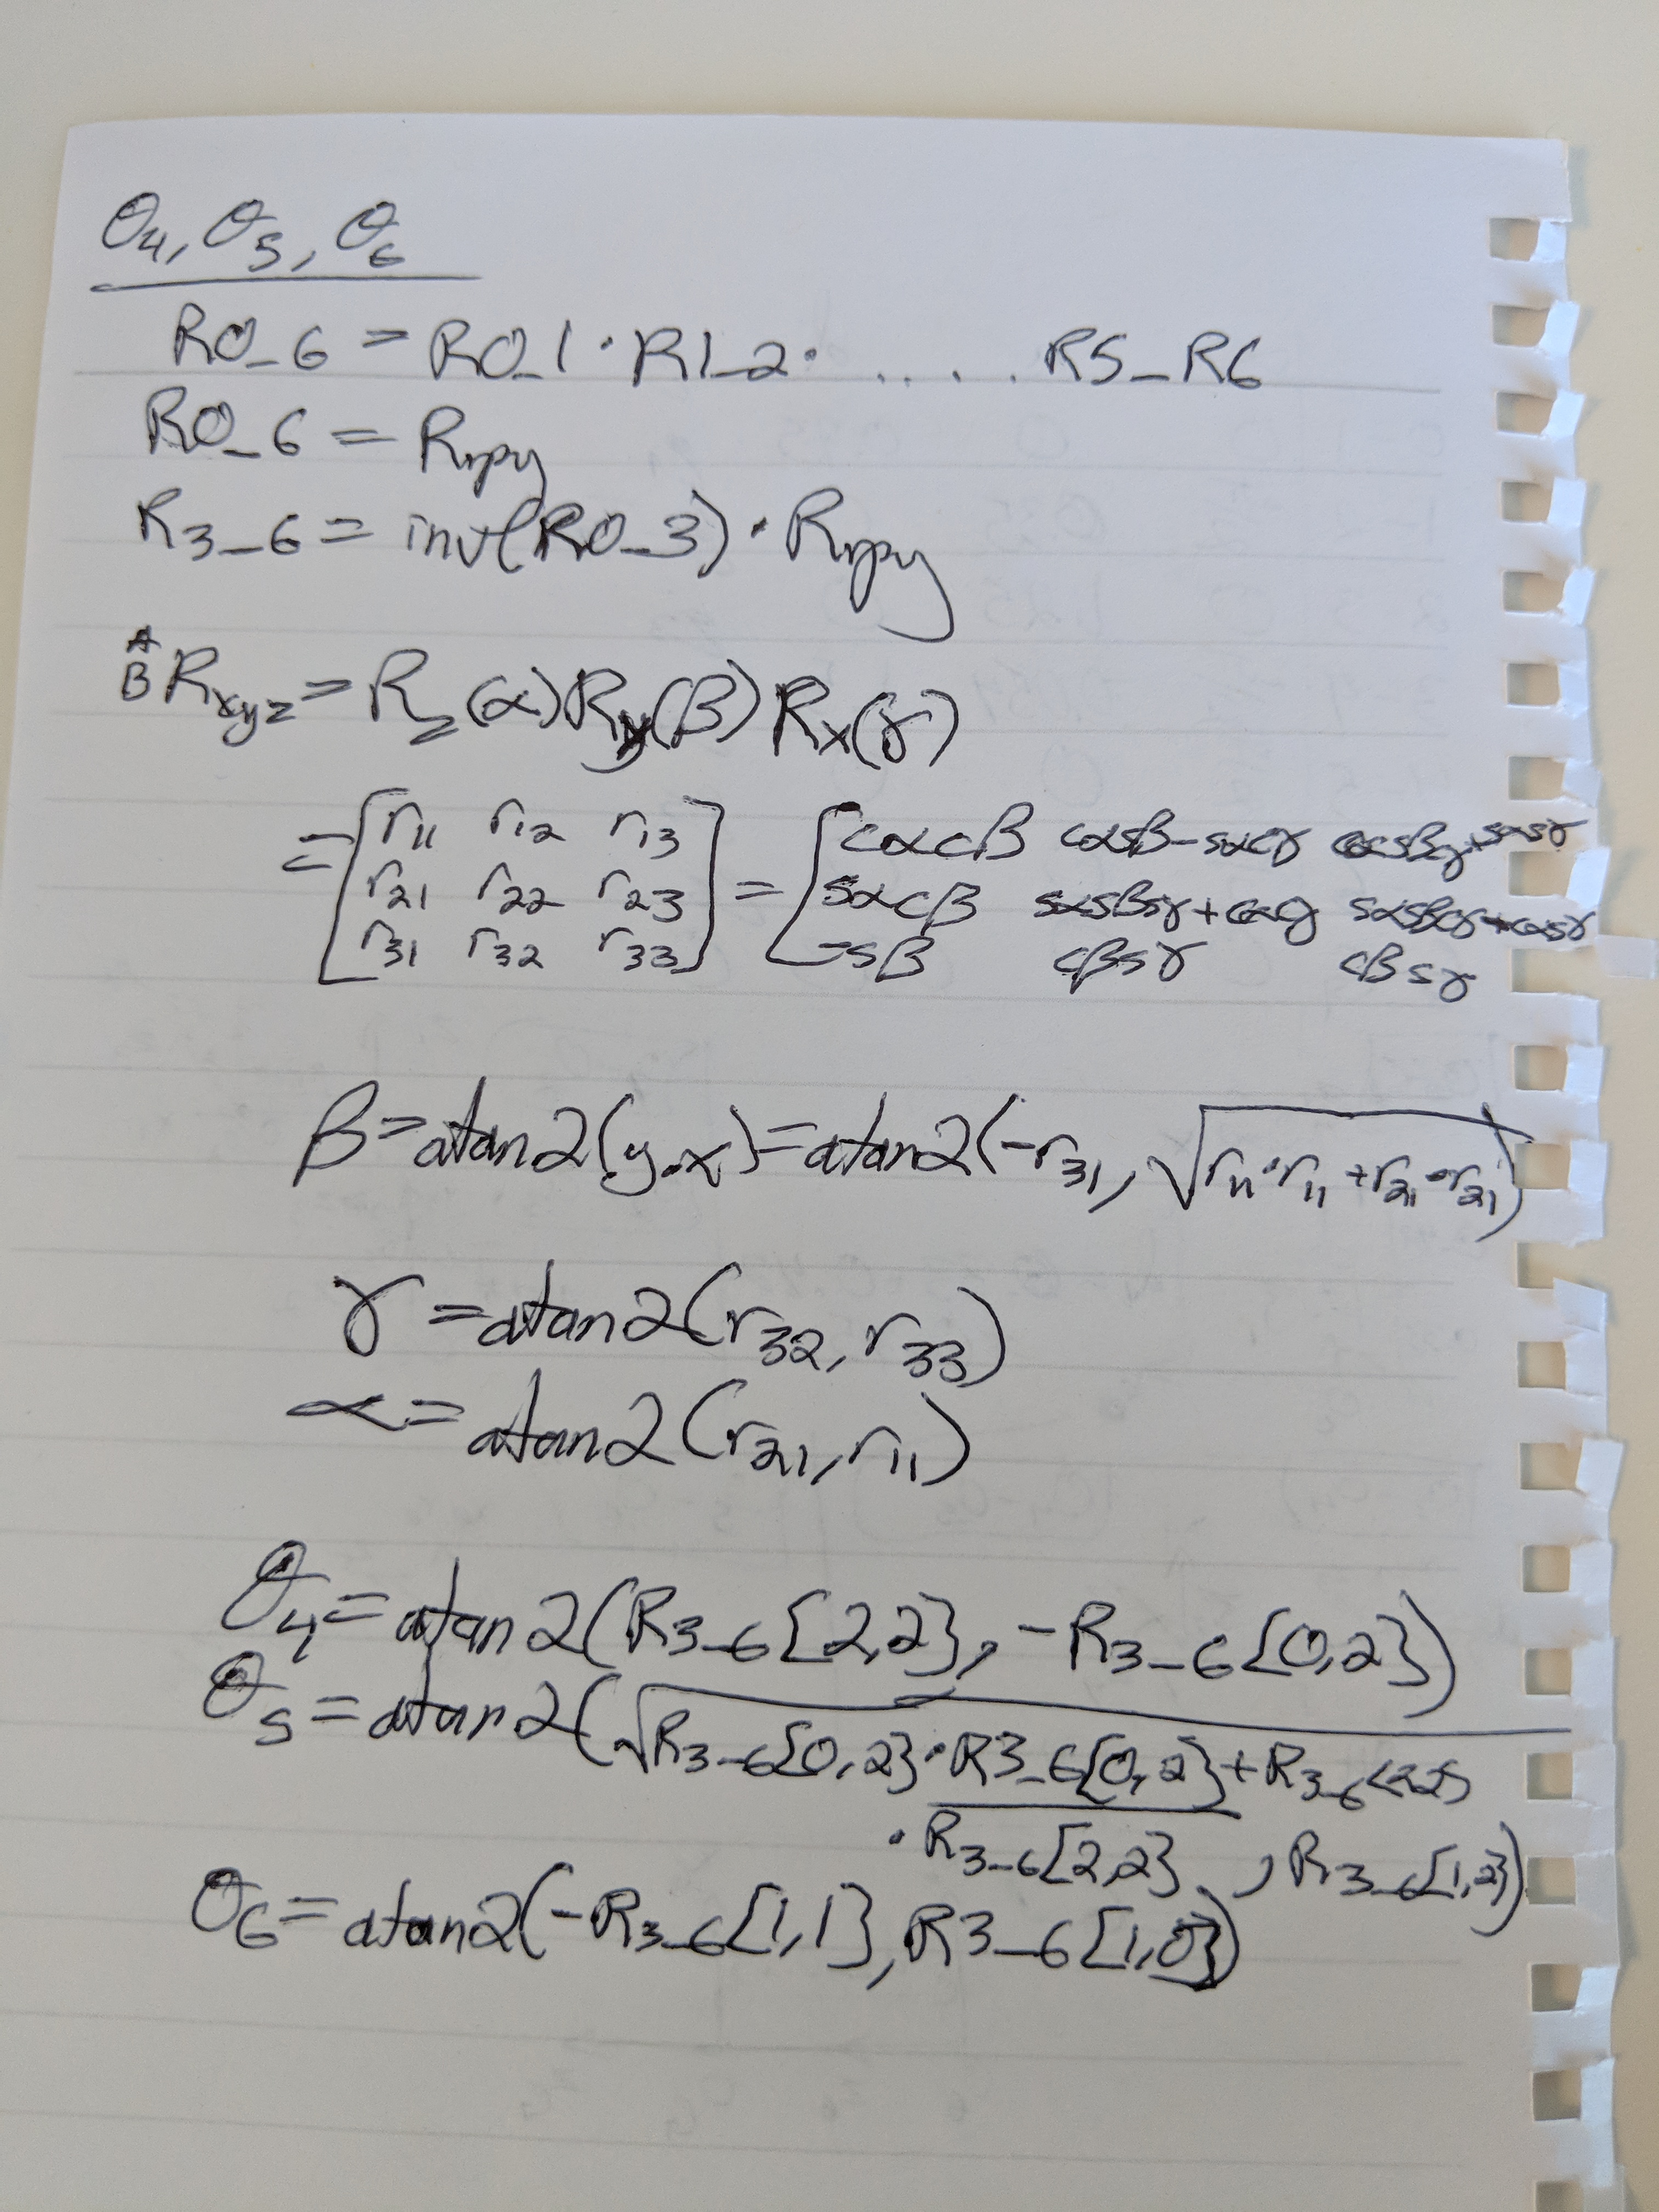 θ4, θ5, θ6
R0_6 = R0_1 · R1_2 · . . . . R5_R6
R0_6 = Rrpy
R3_6 = inv(R0_3) · Rrpy
A
B Rxyz = Rz(α)Ry(β)Rx(γ)
= [r11 r12 r13] = [cαcβ cαsβ-sαcγ cαsβcγ+sαsγ
r21 r22 r23 sαcβ sαsβsγ+cαcγ sαsβcγ+cαsγ
r31 r32 r33 -sβ cβsγ cβsγ
β = atan2(y,x) = atan2(-r31, √r11·r11+r21·r21)
γ = atan2(r32, r33)
α = atan2(r21, r11)
θ4 = atan2(R3_6[2,2], -R3_6[0,2])
θ5 = atan2(√R3_6[0,2]·R3_6[0,2]+R3_6[2,2]
·R3_6[2,2], R3_6[1,2])
θ6 = atan2(-R3_6[1,1], R3_6[1,0])